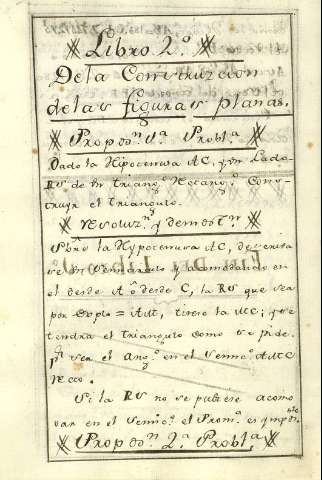 Libro 2º.
De la Construzcion
de las figuras planas.
Propoon. 1ª. Probl.a
Dado la Hipotenusa AC, y un Lado
RS de un triang.º Rectang.º Cons-
truyr el triangulo.
resoluz.n y demost.n
Sobre la Hypotenusa AC, descriva
se un Semicirculo y acomodando en
el desde A ô desde C, la RS que sea
por explo = AM, tirese la MC; y se
tendra el triangulo como se pide.
p.s sea el ang.º en el semic. AMC
recto.
Si la RS no se pudiere acomo
dar en el semic.º el Prom.a es ymposble
Propoon. 2.ª Probl.a